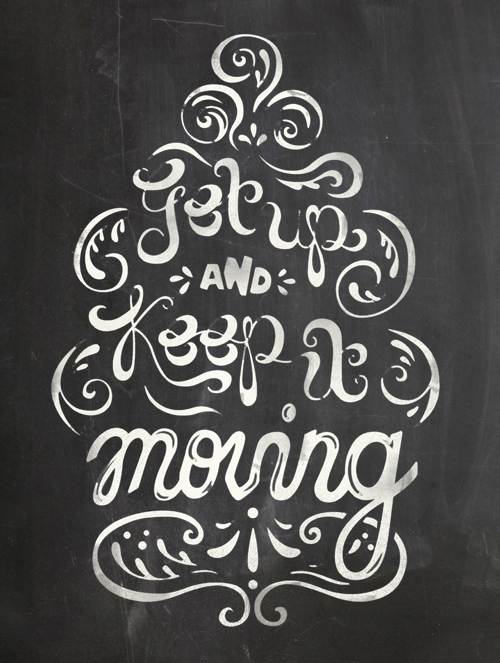 Get up
AND
Keep it
moving